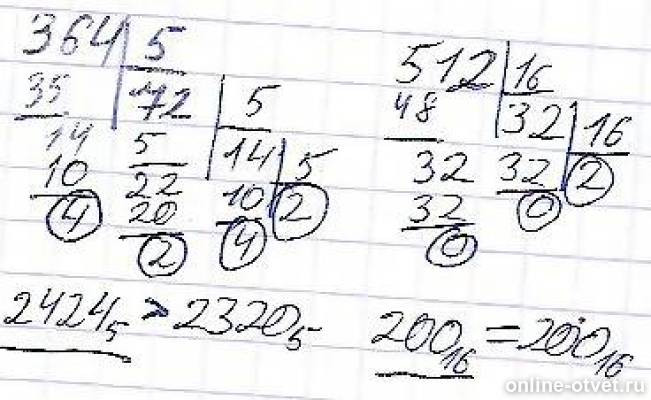 364 5
35 72 5
14 5 14 5
10 22 10 2
4 20 4
2
512 16
48 32 16
32 32 2
32 0
0
2424₅ > 2320₅
200₁₆ = 200₁₆
online-otvet.ru